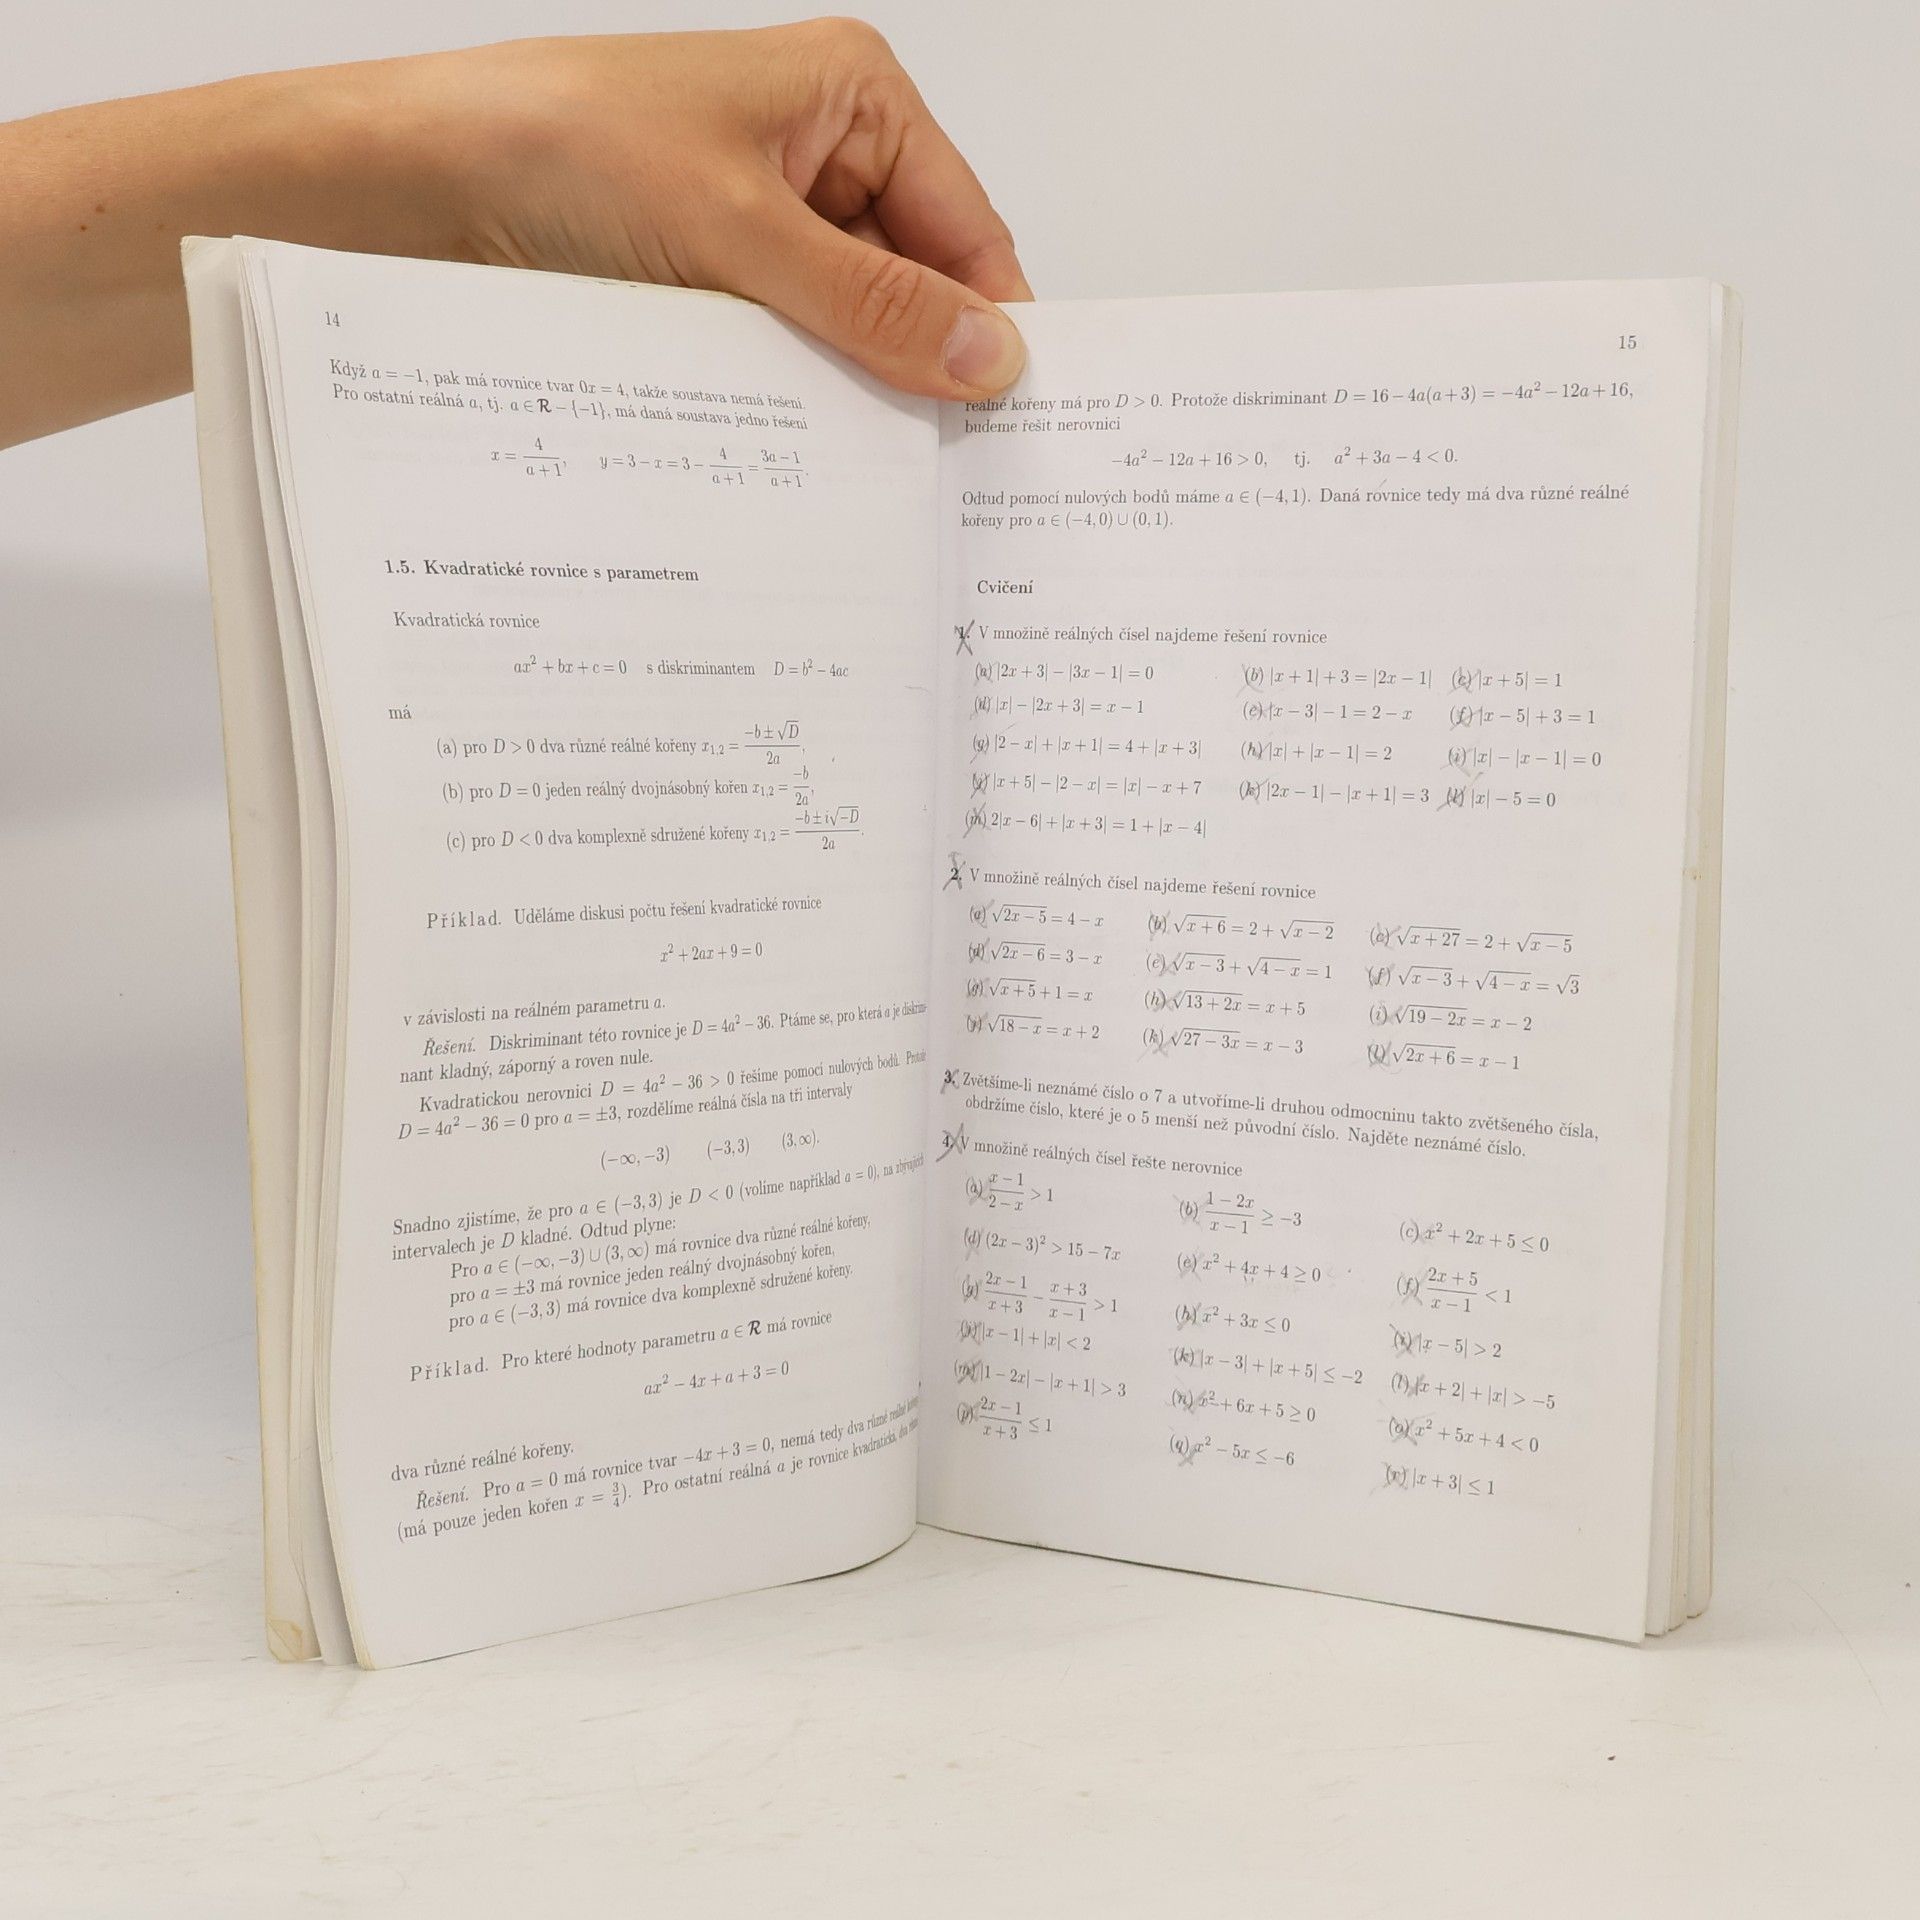 14
Když a = −1, pak má rovnice tvar 0x = 4, takže soustava nemá řešení.
Pro ostatní reálná a, tj. a ∈ R − {−1}, má daná soustava jedno řešení
x = 4/(a + 1), y = 3 − x = 3 − 4/(a + 1) = (3a − 1)/(a + 1).
1.5. Kvadratické rovnice s parametrem
Kvadratická rovnice
ax² + bx + c = 0 s diskriminantem D = b² − 4ac
má
(a) pro D > 0 dva různé reálné kořeny x₁,₂ = (−b ± √D)/2a,
(b) pro D = 0 jeden reálný dvojnásobný kořen x₁,₂ = −b/2a,
(c) pro D < 0 dva komplexně sdružené kořeny x₁,₂ = (−b ± i√−D)/2a.
Příklad. Uděláme diskusi počtu řešení kvadratické rovnice
x² + 2ax + 9 = 0
v závislosti na reálném parametru a.
Řešení. Diskriminant této rovnice je D = 4a² − 36. Ptáme se, pro která a je diskrimi-
nant kladný, záporný a roven nule.
Kvadratickou nerovnici D = 4a² − 36 > 0 řešíme pomocí nulových bodů. Protože
D = 4a² − 36 = 0 pro a = ±3, rozdělíme reálná čísla na tři intervaly
(−∞, −3) (−3, 3) (3, ∞).
Snadno zjistíme, že pro a ∈ (−3, 3) je D < 0 (volíme například a = 0), na zbývajících
intervalech je D kladné. Odtud plyne:
Pro a ∈ (−∞, −3) ∪ (3, ∞) má rovnice dva různé reálné kořeny,
pro a = ±3 má rovnice jeden reálný dvojnásobný kořen,
pro a ∈ (−3, 3) má rovnice dva komplexně sdružené kořeny.
Příklad. Pro které hodnoty parametru a ∈ R má rovnice
ax² − 4x + a + 3 = 0
dva různé reálné kořeny.
Řešení. Pro a = 0 má rovnice tvar −4x + 3 = 0, nemá tedy dva různé reálné kořeny
(má pouze jeden kořen x = 3/4). Pro ostatní reálná a je rovnice kvadratická, dva různé
15
reálné kořeny má pro D > 0. Protože diskriminant D = 16 − 4a(a + 3) = −4a² − 12a + 16,
budeme řešit nerovnici
−4a² − 12a + 16 > 0, tj. a² + 3a − 4 < 0.
Odtud pomocí nulových bodů máme a ∈ (−4, 1). Daná rovnice tedy má dva různé reálné
kořeny pro a ∈ (−4, 0) ∪ (0, 1).
Cvičení
1. V množině reálných čísel najdeme řešení rovnice
(a) |2x + 3| − |3x − 1| = 0 (b) |x + 1| + 3 = |2x − 1| (c) |x + 5| = 1
(d) |x| − |2x + 3| = x − 1 (e) |x − 3| − 1 = 2 − x (f) |x − 5| + 3 = 1
(g) |2 − x| + |x + 1| = 4 + |x + 3| (h) |x| + |x − 1| = 2 (i) |x| − |x − 1| = 0
(j) |x + 5| − |2 − x| = |x| − x + 7 (k) |2x − 1| − |x + 1| = 3 (l) |x| − 5 = 0
(m) 2|x − 6| + |x + 3| = 1 + |x − 4|
2. V množině reálných čísel najdeme řešení rovnice
(a) √(2x − 5) = 4 − x (b) √(x + 6) = 2 + √(x − 2) (c) √(x + 27) = 2 + √(x − 5)
(d) √(2x − 6) = 3 − x (e) √(x − 3) + √(4 − x) = 1 (f) √(x − 3) + √(4 − x) = √3
(g) √(x + 5) + 1 = x (h) √(13 + 2x) = x + 5 (i) √(19 − 2x) = x − 2
(j) √(18 − x) = x + 2 (k) √(27 − 3x) = x − 3 (l) √(2x + 6) = x − 1
3. Zvětšíme-li neznámé číslo o 7 a utvoříme-li druhou odmocninu takto zvětšeného čísla,
obdržíme číslo, které je o 5 menší než původní číslo. Najděte neznámé číslo.
4. V množině reálných čísel řešte nerovnice
(a) (x − 1)/(2 − x) > 1 (b) (1 − 2x)/(x − 1) ≥ −3 (c) x² + 2x + 5 ≤ 0
(d) (2x − 3)² > 15 − 7x (e) x² + 4x + 4 ≥ 0 (f) (2x + 5)/(x − 1) < 1
(g) (2x − 1)/(x + 3) − (x + 3)/(x − 1) > 1 (h) x² + 3x ≤ 0 (i) |x − 5| > 2
(j) |x − 1| + |x| < 2 (k) |x − 3| + |x + 5| ≤ −2 (l) |x + 2| + |x| > −5
(m) |1 − 2x| − |x + 1| > 3 (n) x² + 6x + 5 ≥ 0 (o) x² + 5x + 4 < 0
(p) (2x − 1)/(x + 3) ≤ 1 (q) x² − 5x ≤ −6 (r) |x + 3| ≤ 1